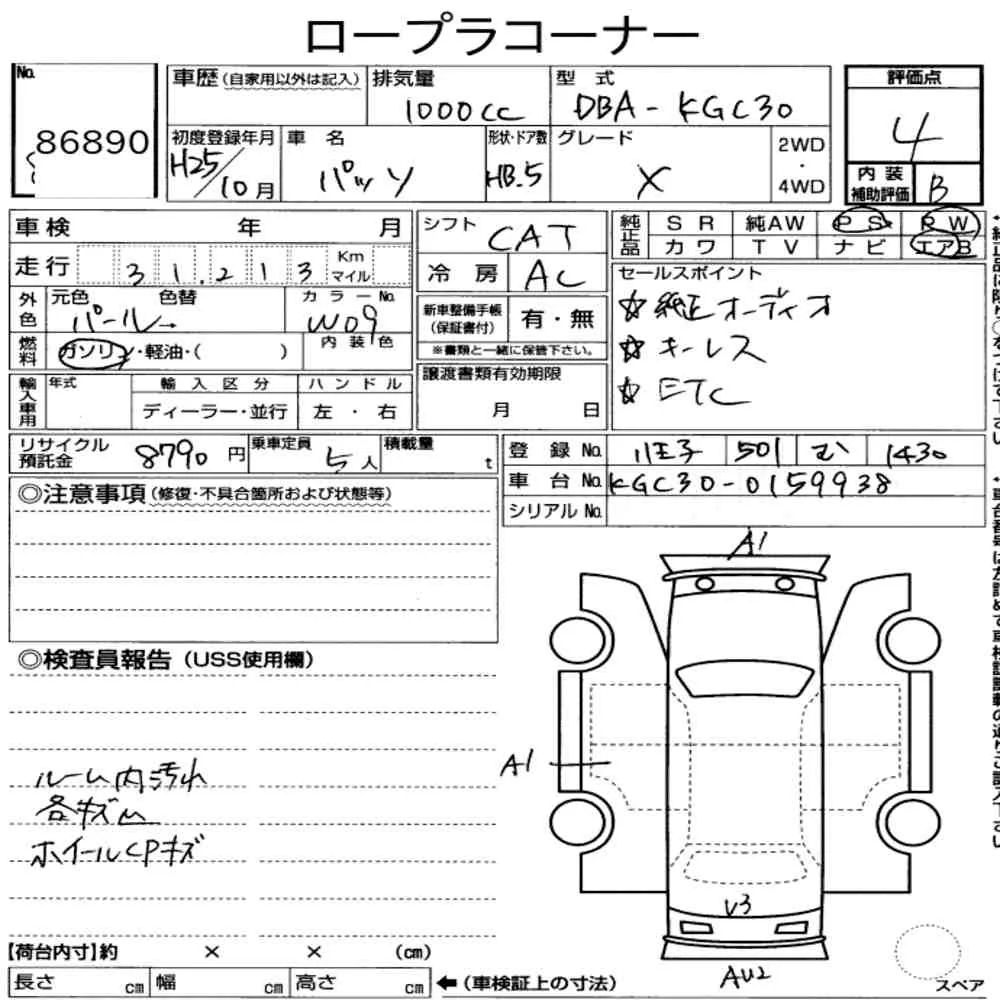 ロープラコーナー
No.
86890
車歴 (自家用以外は記入)
排気量
1000cc
型式
DBA-KGC30
評価点
4
内装補助評価
B
初度登録年月
H25/10月
車名
パッソ
形状・ドア数
HB.5
グレード
X
2WD・4WD
車検 年 月
走行 31,213 Km マイル
シフト
CAT
冷房
AC
純正品
SR 純AW PS PW
カワ TV ナビ エアB
外色
元色 色替
パール→
カラーNo.
W09
内装色
燃料
ガソリン・軽油・( )
新車整備手帳(保証書付)
有・無
※書類と一緒に保管下さい。
セールスポイント
☆純正オーディオ
☆キーレス
☆ETC
輸入車用
年式
輸入区分
ディーラー・並行
ハンドル
左・右
譲渡書類有効期限
月 日
リサイクル預託金
8790円
乗車定員
5人
積載量
t
登録No.
八王子 501 む 1430
車台No.
KGC30-0159938
シリアルNo.
◎注意事項(修復・不具合箇所および状態等)
◎検査員報告(USS使用欄)
ルーム内汚れ
各キズム
ホイールCPキズ
A1
A1
U3
AU2
スペア
【荷台内寸】約 × × (cm)
長さ cm 幅 cm 高さ cm
←(車検証上の寸法)